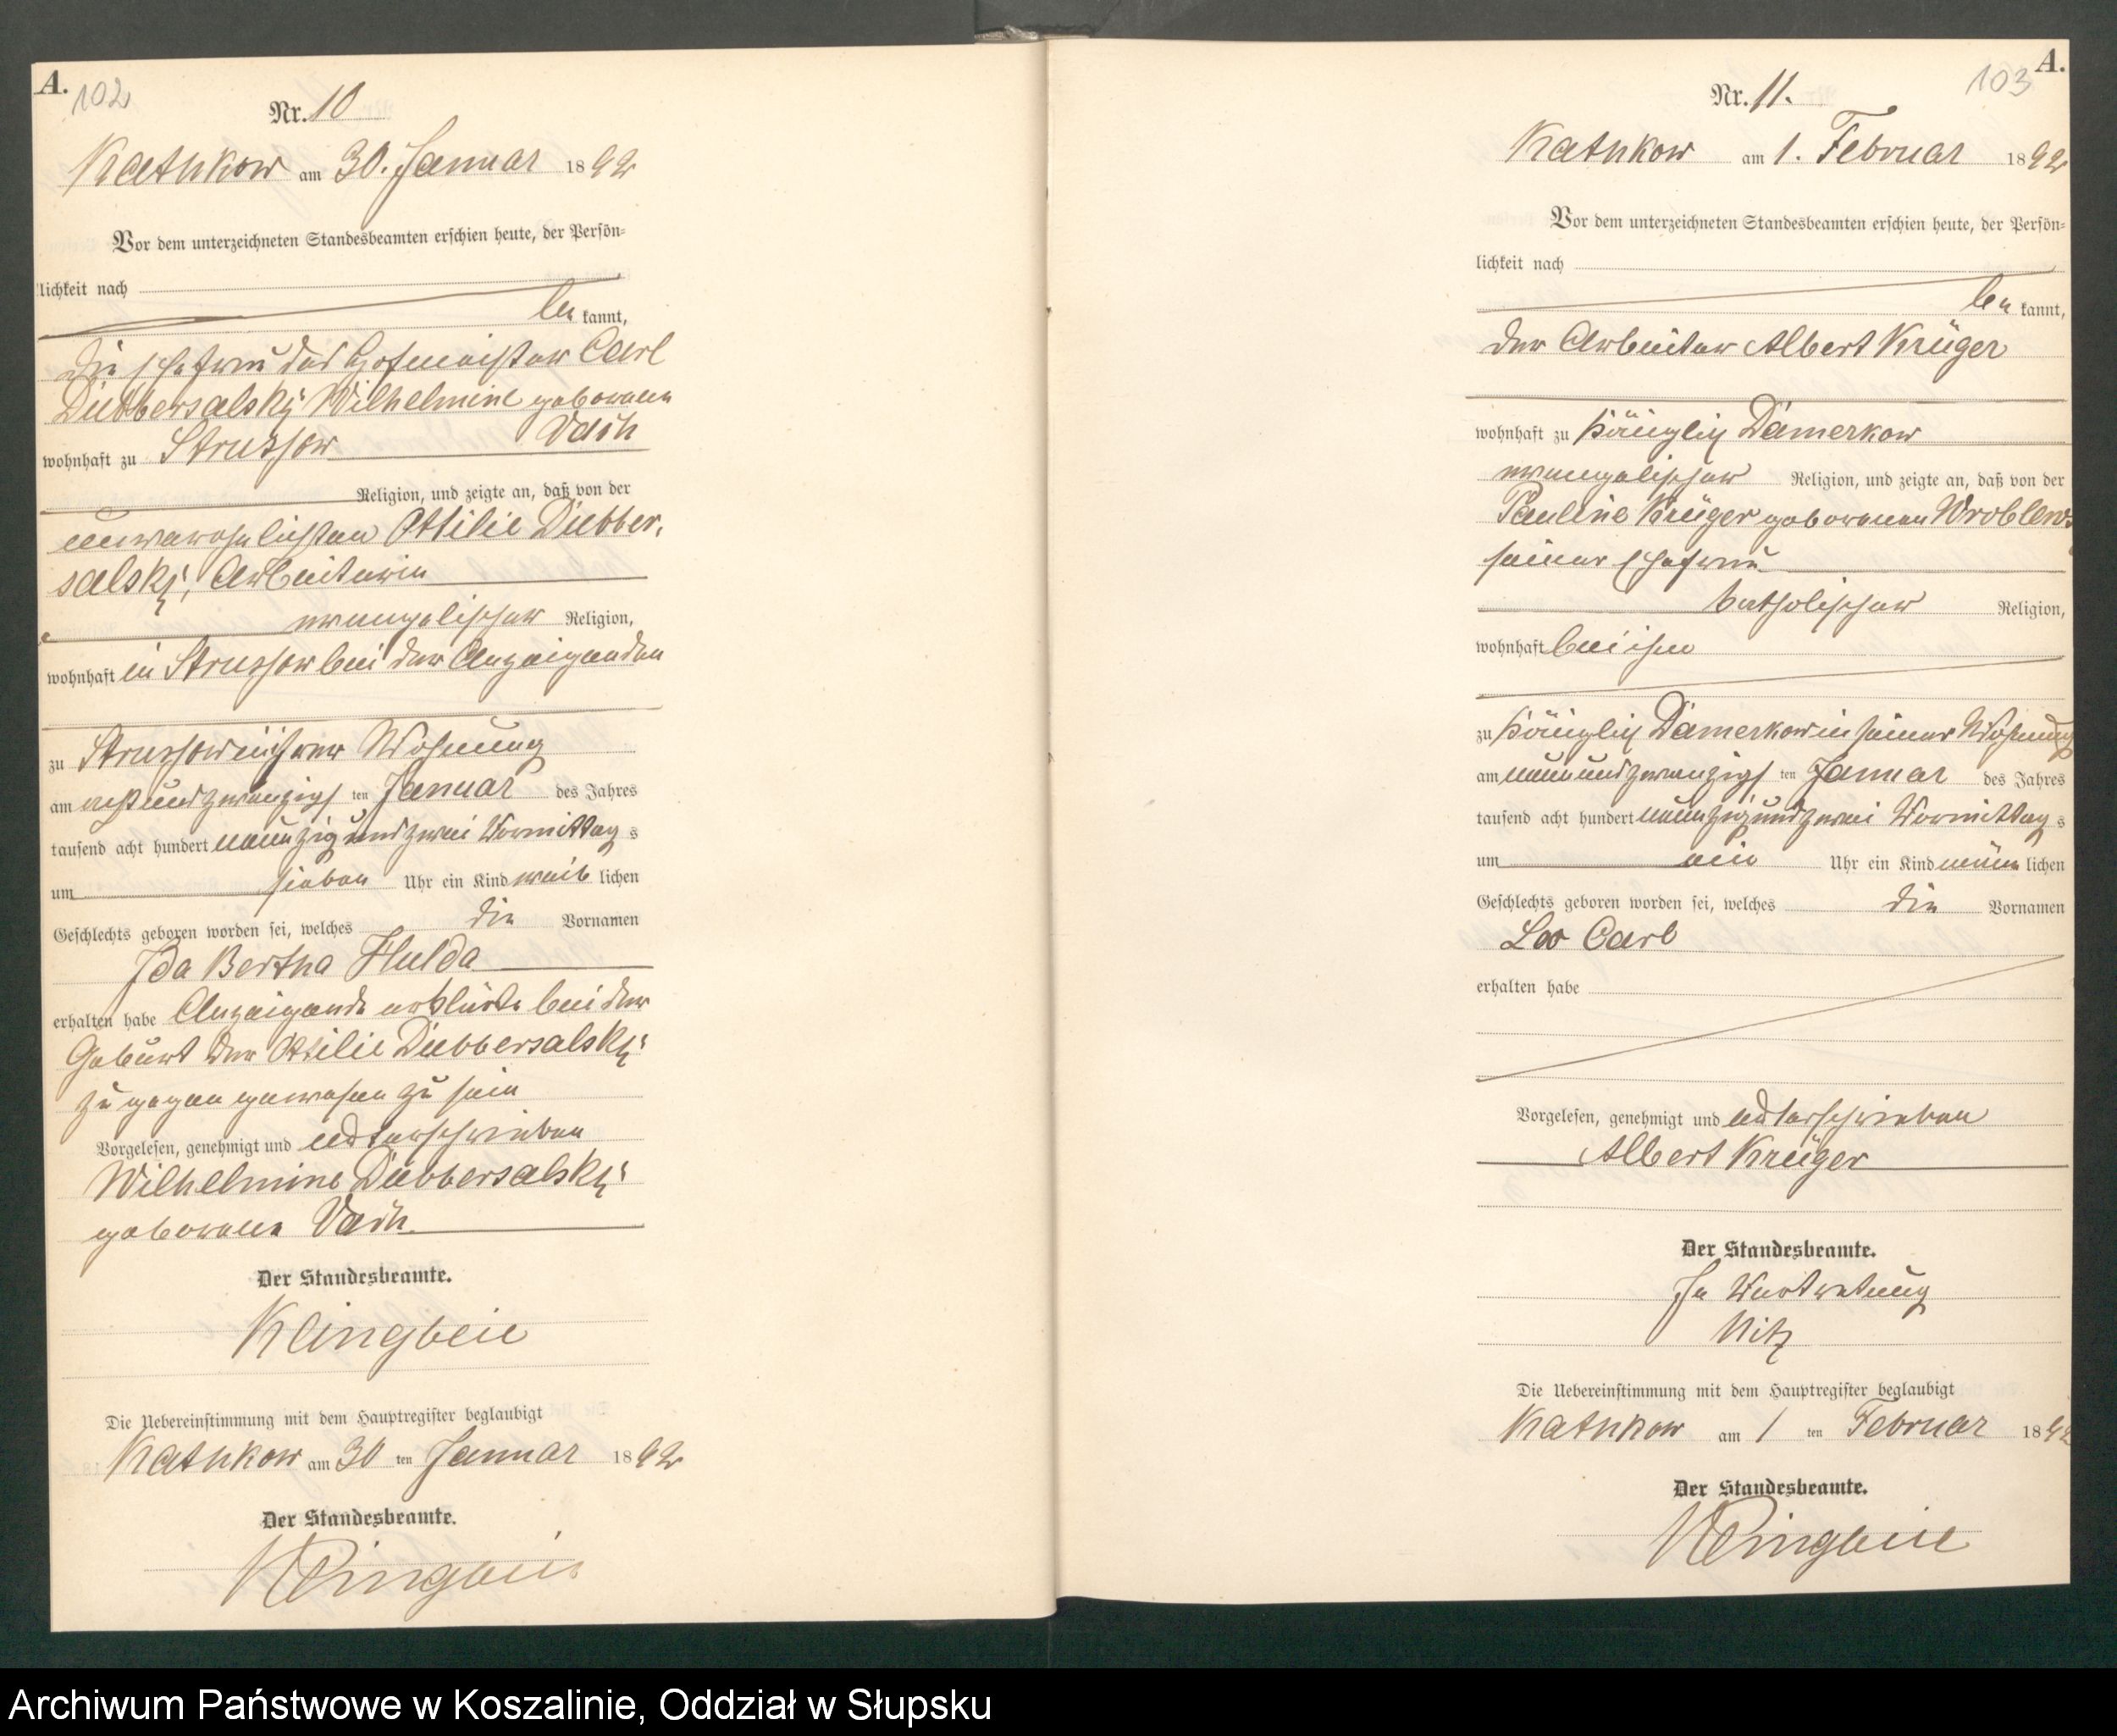 A.
102
Nr. 10
Kathkow am 30. Januar 1892
Vor dem unterzeichneten Standesbeamten erschien heute, der Persön=
lichkeit nach
be kannt,
die Ehefrau des Hofmeister Carl
Dubbersalsky Wilhelmine geborene
Vach
wohnhaft zu Strussow
Religion, und zeigte an, daß von der
unverehelichten Ottilie Dubber,
salsky, Arbeiterin
evangelischer Religion,
wohnhaft in Strussow bei der Anzeigenden
zu Strussow in ihrer Wohnung
am acht und zwanzigs ten Januar des Jahres
tausend acht hundert neunzig und zwei Vormittag s
um sieben Uhr ein Kind weib lichen
Geschlechts geboren worden sei, welches die Vornamen
Ida Bertha Hulda
erhalten habe Anzeigende erklärte bei der
Geburt der Ottilie Dubbersalsky
zugegen gewesen zu sein
Vorgelesen, genehmigt und unterschrieben
Wilhelmine Dubbersalsky
geborene Vach.
Der Standesbeamte.
Klingbeil
Die Uebereinstimmung mit dem Hauptregister beglaubigt
Kathkow am 30 ten Januar 1892
Der Standesbeamte.
Klingbeil
A.
103
Nr. 11.
Kathkow am 1. Februar 1892
Vor dem unterzeichneten Standesbeamten erschien heute, der Persön=
lichkeit nach
be kannt,
der Arbeiter Albert Krüger
wohnhaft zu Königlich Damerkow
evangelischer Religion, und zeigte an, daß von der
Pauline Krüger geborenen Wroblews
seiner Ehefrau
katholischer Religion,
wohnhaft bei ihm
zu Königlich Damerkow in seiner Wohnung
am neun und zwanzigs ten Januar des Jahres
tausend acht hundert neunzig und zwei Vormittag s
um ein Uhr ein Kind männ lichen
Geschlechts geboren worden sei, welches die Vornamen
Leo Carl
erhalten habe
Vorgelesen, genehmigt und unterschrieben
Albert Krüger
Der Standesbeamte.
In Vertretung
Nitz
Die Uebereinstimmung mit dem Hauptregister beglaubigt
Kathkow am 1 ten Februar 1892
Der Standesbeamte.
Klingbeil
Archiwum Państwowe w Koszalinie, Oddział w Słupsku